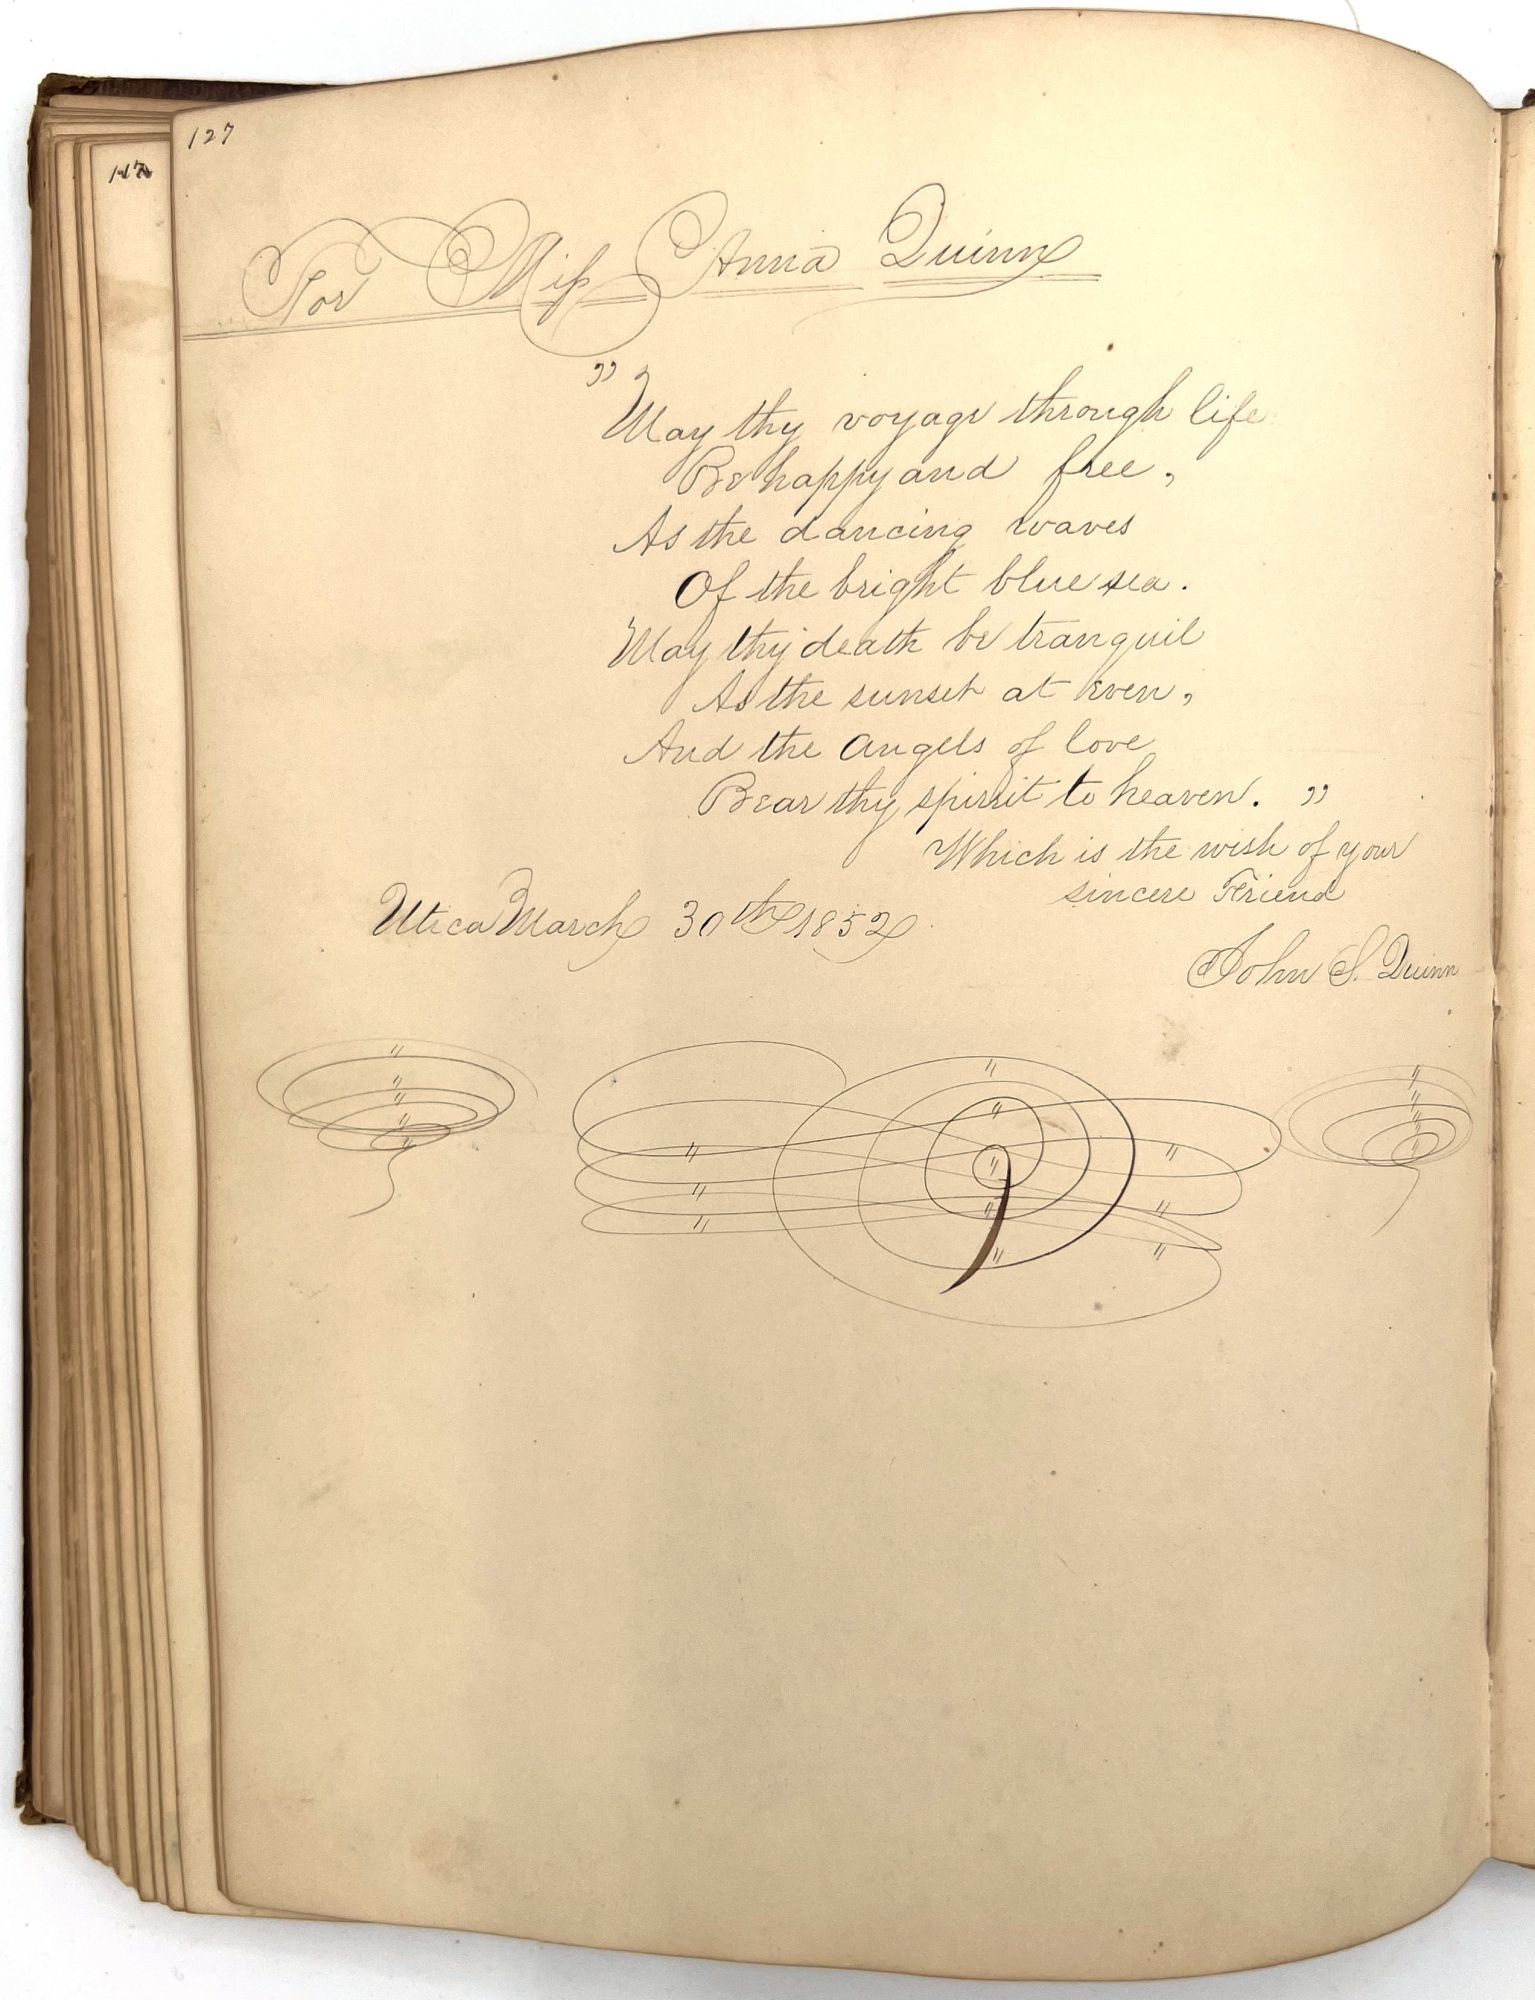 127
For Miss Anna Quinn
"May thy voyage through life
Be happy and free,
As the dancing waves
Of the bright blue sea.
May thy death be tranquil
As the sunset at even,
And the angels of love
Bear thy spirit to heaven."
Which is the wish of your
sincere Friend
Utica March 30th 1852
John S. Quinn